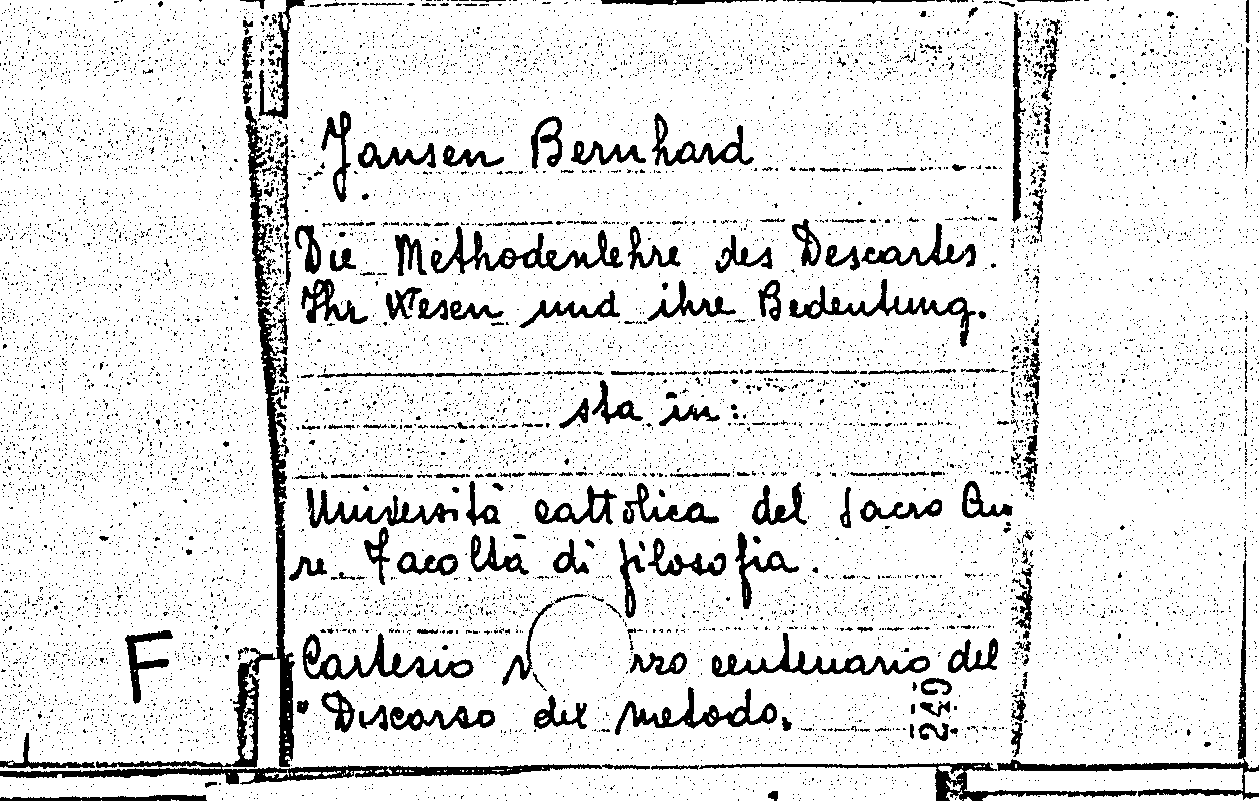 Jansen Bernhard
Die Methodenlehre des Descartes.
Ihr Wesen und ihre Bedeutung.
sta in:
Università cattolica del Sacro Cuo
re. Facoltà di filosofia.
Cartesio centenario del
"Discorso del metodo.
F
249